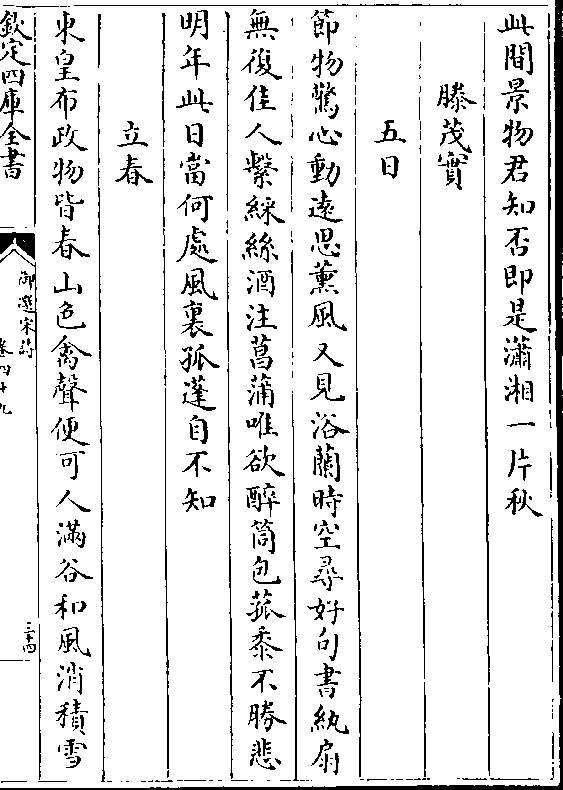 此間景物君知否即是瀟湘一片秋
滕茂實
五日
節物驚心動遠思薰風又見浴蘭時空尋好句書紈扇
無復佳人繫綵絲酒注菖蒲唯欲醉筒包菰黍不勝悲
明年此日當何處風裏孤蓬自不知
立春
東皇布政物皆春山色禽聲便可人滿谷和風消積雪
欽定四庫全書
御選宋詩
卷四十九
三十四